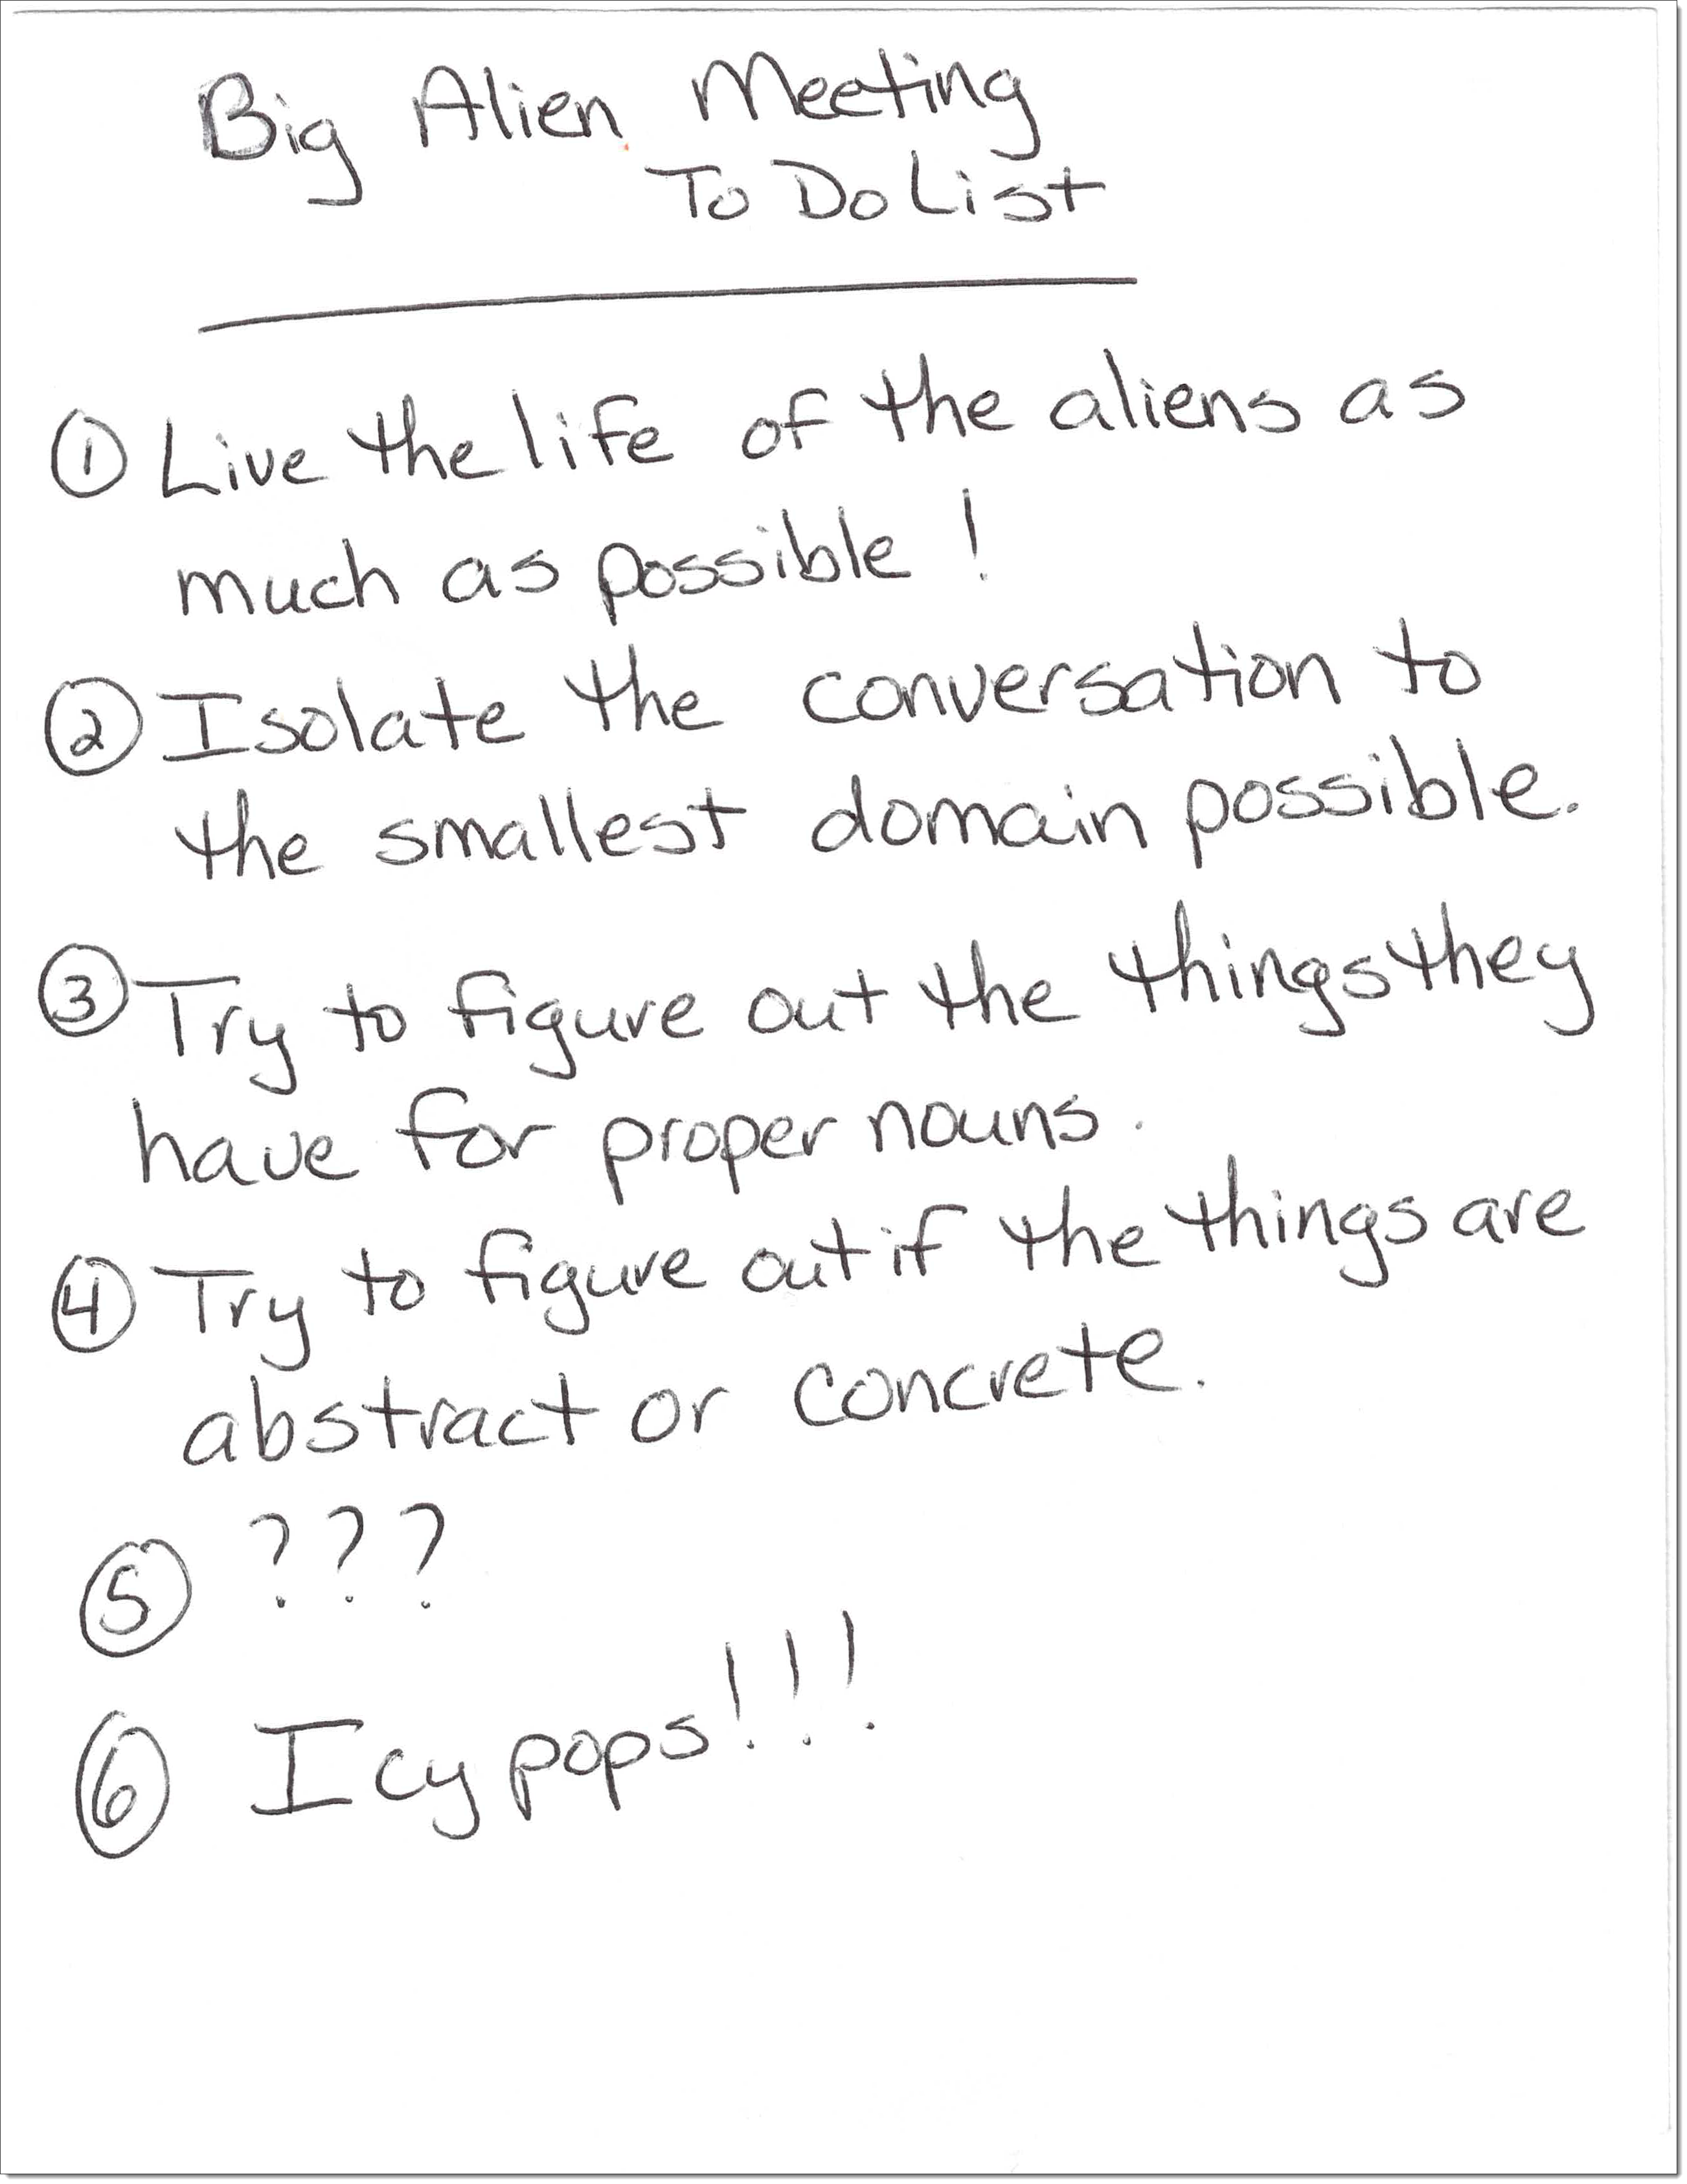 Big Alien Meeting
To Do List
① Live the life of the aliens as
much as possible!
② Isolate the conversation to
the smallest domain possible.
③ Try to figure out the things they
have for proper nouns.
④ Try to figure out if the things are
abstract or concrete.
⑤ ???
⑥ Icy pops!!!